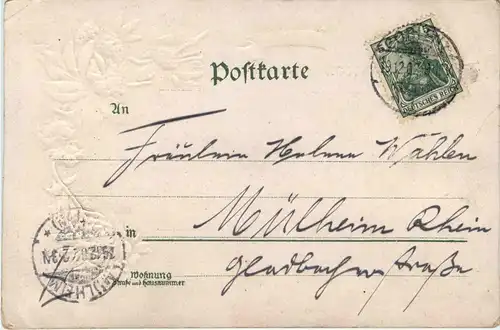 Postkarte
DEUTSCHES REICH
An
Fräulein Helene Wahlen
in
Mülheim Rhein
Gladbacherstraße
Wohnung
Straße und Hausnummer